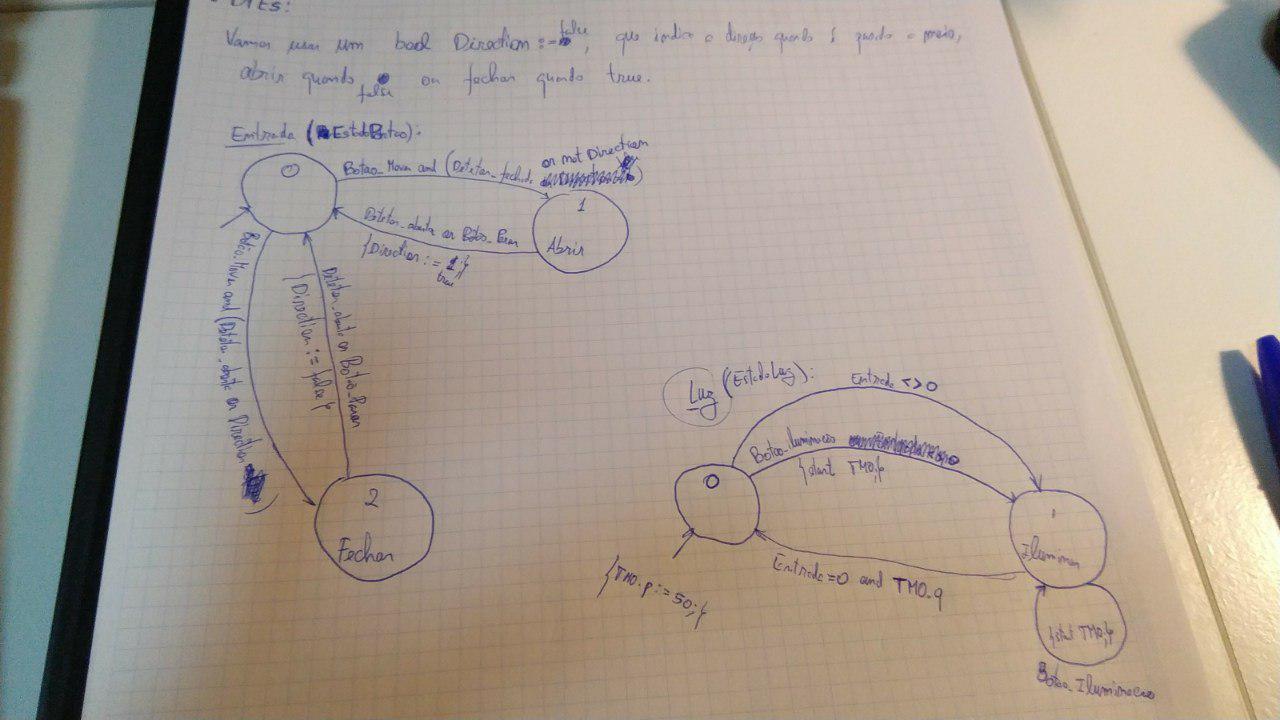 Vamos usar um bool Direction := false, que indica a direção quando é quando o
abrir quando false ou fechar quando true.
Entrada (EstadoBotao):
0
Botao_Mover and (Detetor_fechado or not Direction)
1
Abrir
Detetor_aberto or Botao_Parar
{Direction := true;}
Botao_Mover and (Detetor_aberto or Direction)
Detetor_aberto or Botao_Parar
{Direction := false;}
2
Fechar
Luz (EstadoLuz):
Entrada <> 0
Botao_iluminacao
{start TM0;}
0
1
Iluminar
{TM0.p := 50;}
Entrada = 0 and TM0.q
{start TM0;}
Botao_Iluminacao